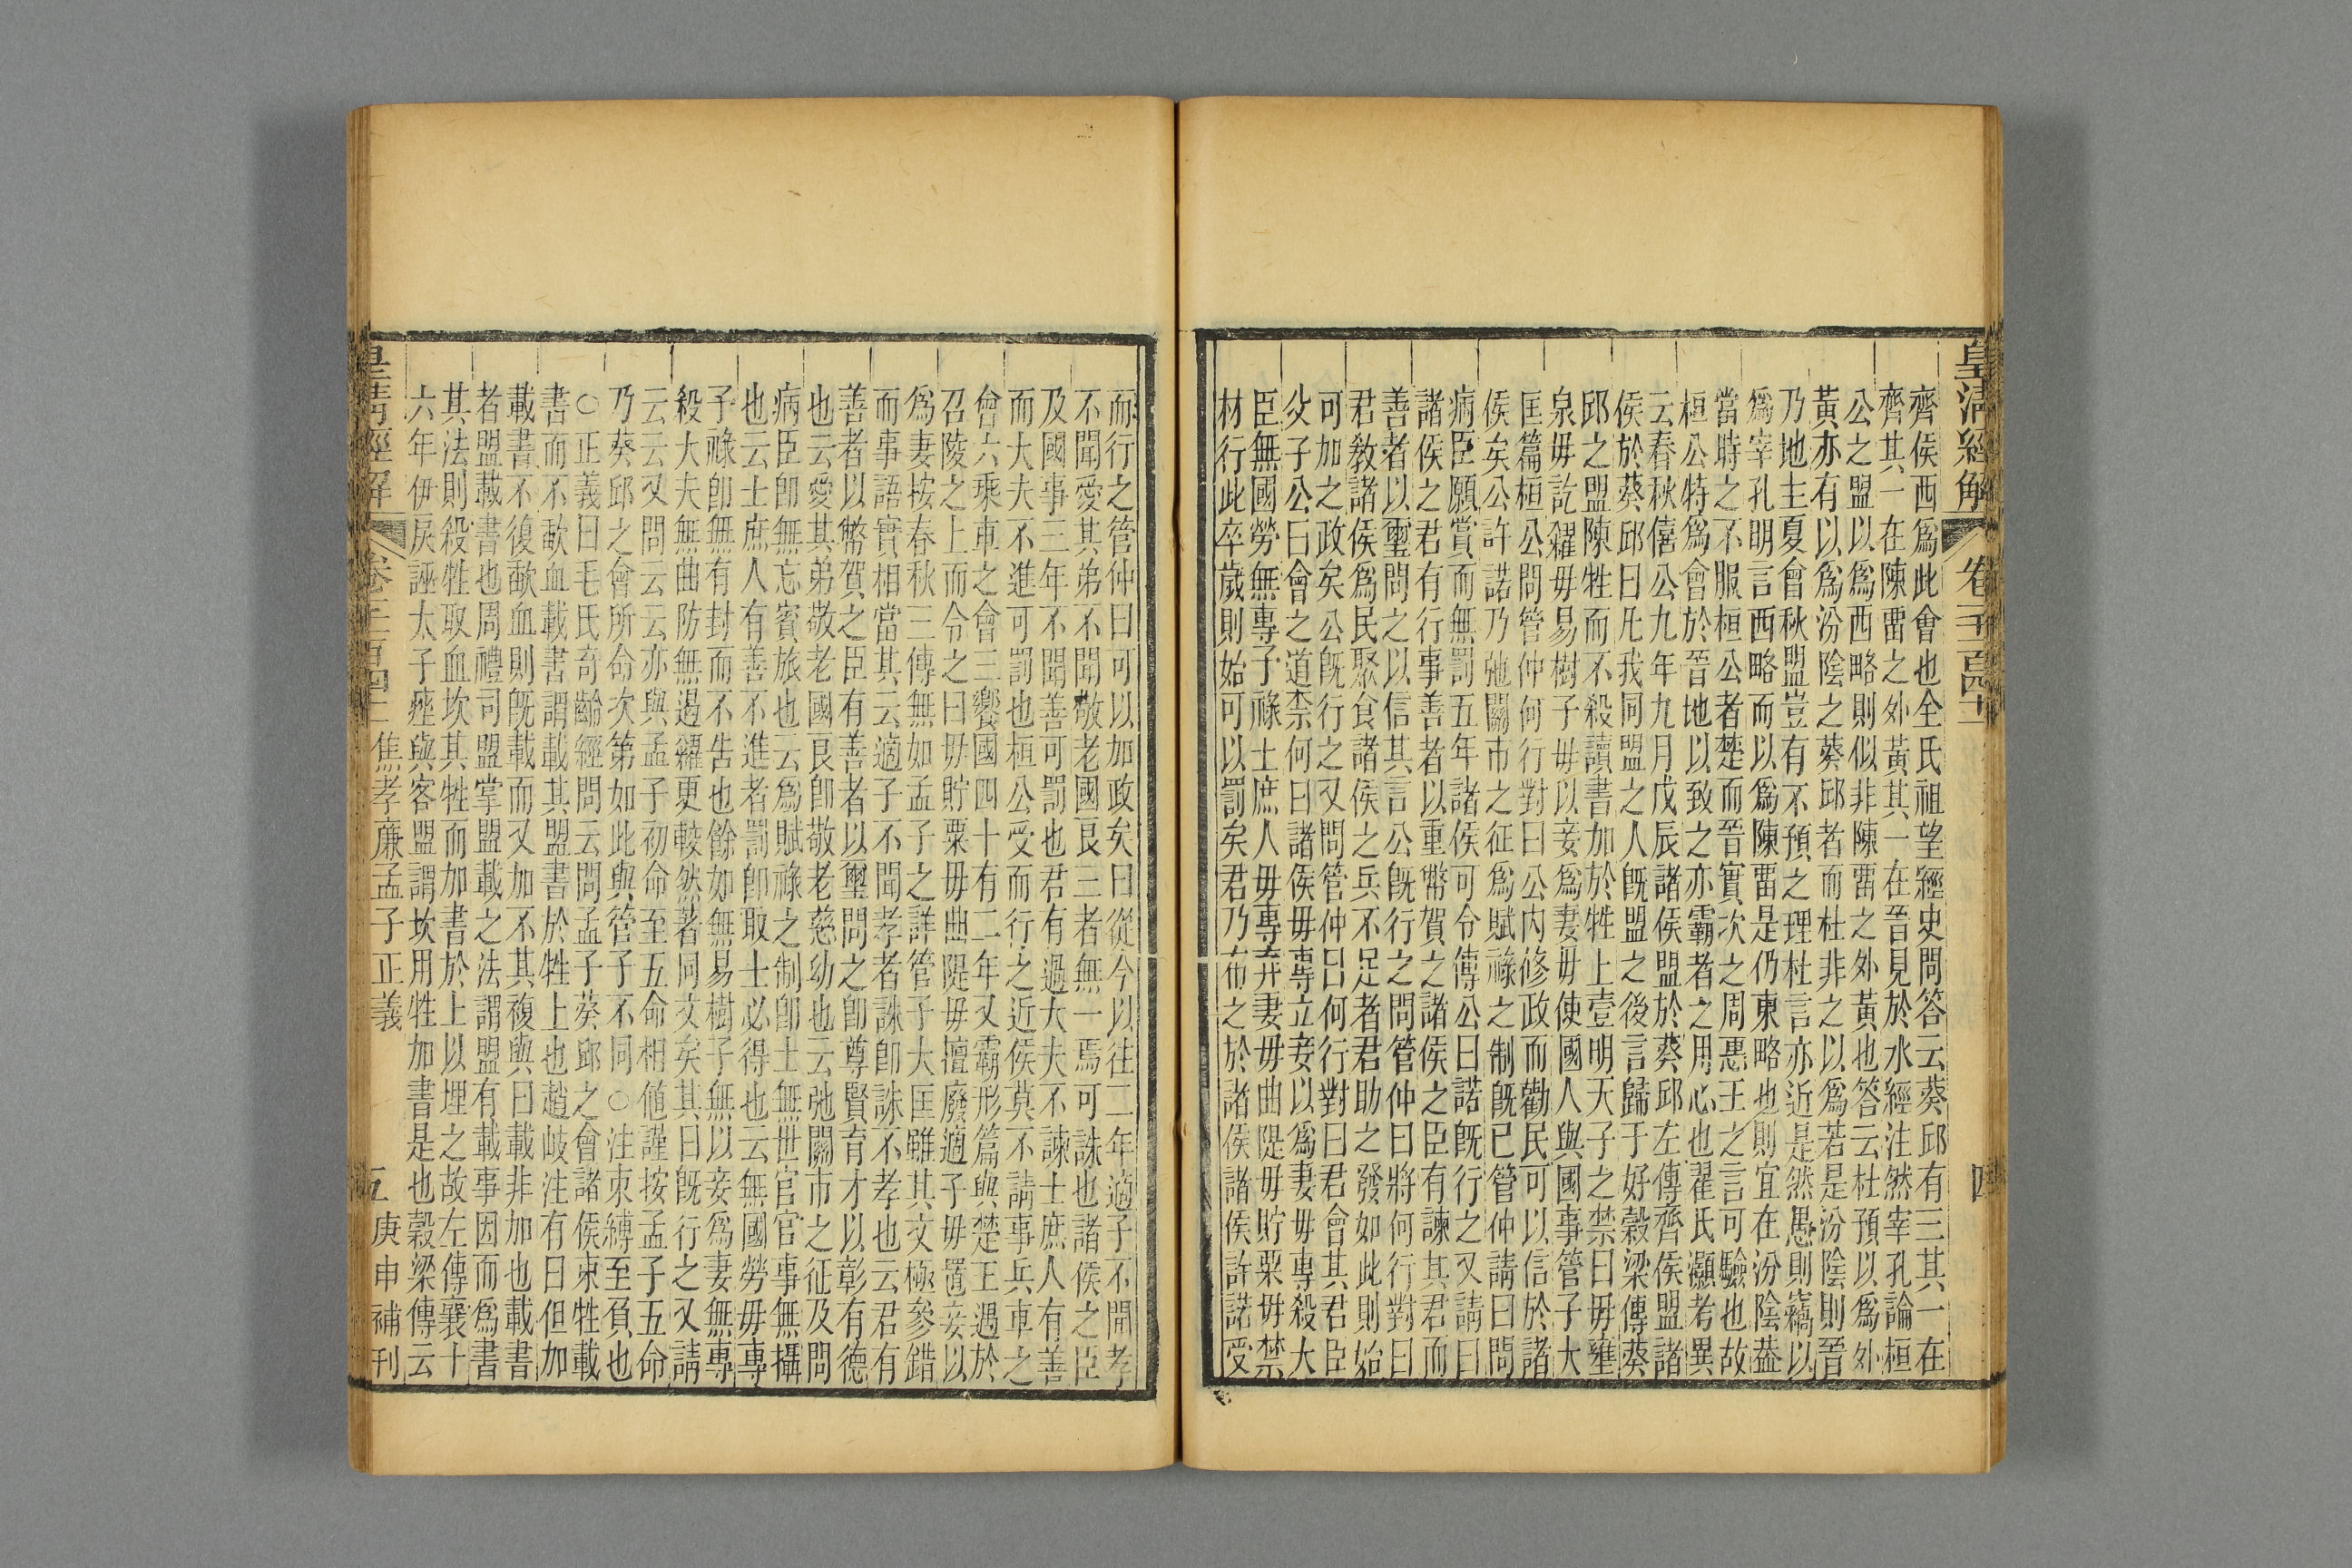 皇淸經解 卷千一百四十二 四
齊侯西爲此會也全氏祖望經史問答云葵邱有三其一在
齊其一在陳畱之外黃其一在晉見於水經注然宰孔論桓
公之盟以爲西略則似非陳畱之外黃也答云杜預以爲外
黃亦有以爲汾陰之葵邱者而杜非之以爲若是汾陰則晉
乃地主夏會秋盟豈有不預之理杜言亦近是然愚則竊以
爲宰孔明言西略而以爲陳畱是仍東略也則宜在汾陰葢
當時之不服桓公者楚而晉實次之周惠王之言可驗也故
桓公特爲會於晉地以致之亦霸者之用心也翟氏灝考異
云春秋僖公九年九月戊辰諸侯盟於葵邱左傳齊侯盟諸
侯於葵邱曰凡我同盟之人旣盟之後言歸于好穀梁傳葵
邱之盟陳牲而不殺讀書加於牲上壹明天子之禁曰毋壅
泉毋訖糴毋易樹子毋以妾爲妻毋使國人與國事管子大
匡篇桓公問管仲何行對曰公內修政而勸民可以信於諸
侯矣公許諾乃弛關市之征爲賦祿之制旣已管仲請曰問
病臣願賞而無罰五年諸侯可令傳公曰諾旣行之又請曰
諸侯之君有行事善者以重幣賀之諸侯之臣有諫其君而
善者以璽問之以信其言公旣行之問管仲曰將何行對曰
君敎諸侯爲民聚食諸侯之兵不足者君助之發如此則始
可加之政矣公旣行之又問管仲曰何行對曰君會其君臣
父子公曰會之道柰何曰諸侯毋專立妾以爲妻毋專殺大
臣無國勞無專予祿士庶人毋專弃妻毋曲隄毋貯粟毋禁
材行此卒歲則始可以罰矣君乃布之於諸侯諸侯許諾受
而行之管仲曰可以加政矣曰從今以往二年適子不聞孝
不聞愛其弟不聞敬老國良三者無一焉可誅也諸侯之臣
及國事三年不聞善可罰也君有過大夫不諫士庶人有善
而大夫不進可罰也桓公受而行之近侯莫不請事兵車之
會六乘車之會三饗國四十有二年又霸形篇與楚王遇於
召陵之上而令之曰毋貯粟毋曲隄毋擅廢適子毋置妾以
爲妻按春秋三傳無如孟子之詳管子大匡雖其文極參錯
而事語實相當其云適子不聞孝者誅卽誅不孝也云君有
善者以幣賀之臣有善者以璽問之卽尊賢育才以彰有德
也云愛其弟敬老國良卽敬老慈幼也云弛關市之征及問
病臣卽無忘賓旅也云爲賦祿之制卽士無世官官事無攝
也云士庶人有善不進者罰卽取士必得也云無國勞毋專
予祿卽無有封而不告也餘如無易樹子無以妾爲妻無專
殺大夫無曲防無遏糴更較然著同文矣其曰旣行之又請
云云又問云云亦與孟子初命至五命相値謹按孟子五命
乃葵邱之會所命次第如此與管子不同○注束縛至負也
○正義曰毛氏奇齡經問云問孟子葵邱之會諸侯束牲載
書而不歃血載書謂載其盟書於牲上也趙岐注有曰但加
載書不復歃血則旣載而又加不其複與曰載非加也載書
者盟載書也周禮司盟掌盟載之法謂盟有載事因而爲書
其法則殺牲取血坎其牲而加書於上以埋之故左傳襄十
六年伊戾誣太子痤與客盟謂坎用牲加書是也穀梁傳云
皇淸經解 卷千一百四十二 焦孝廉孟子正義 五 庚申補刊